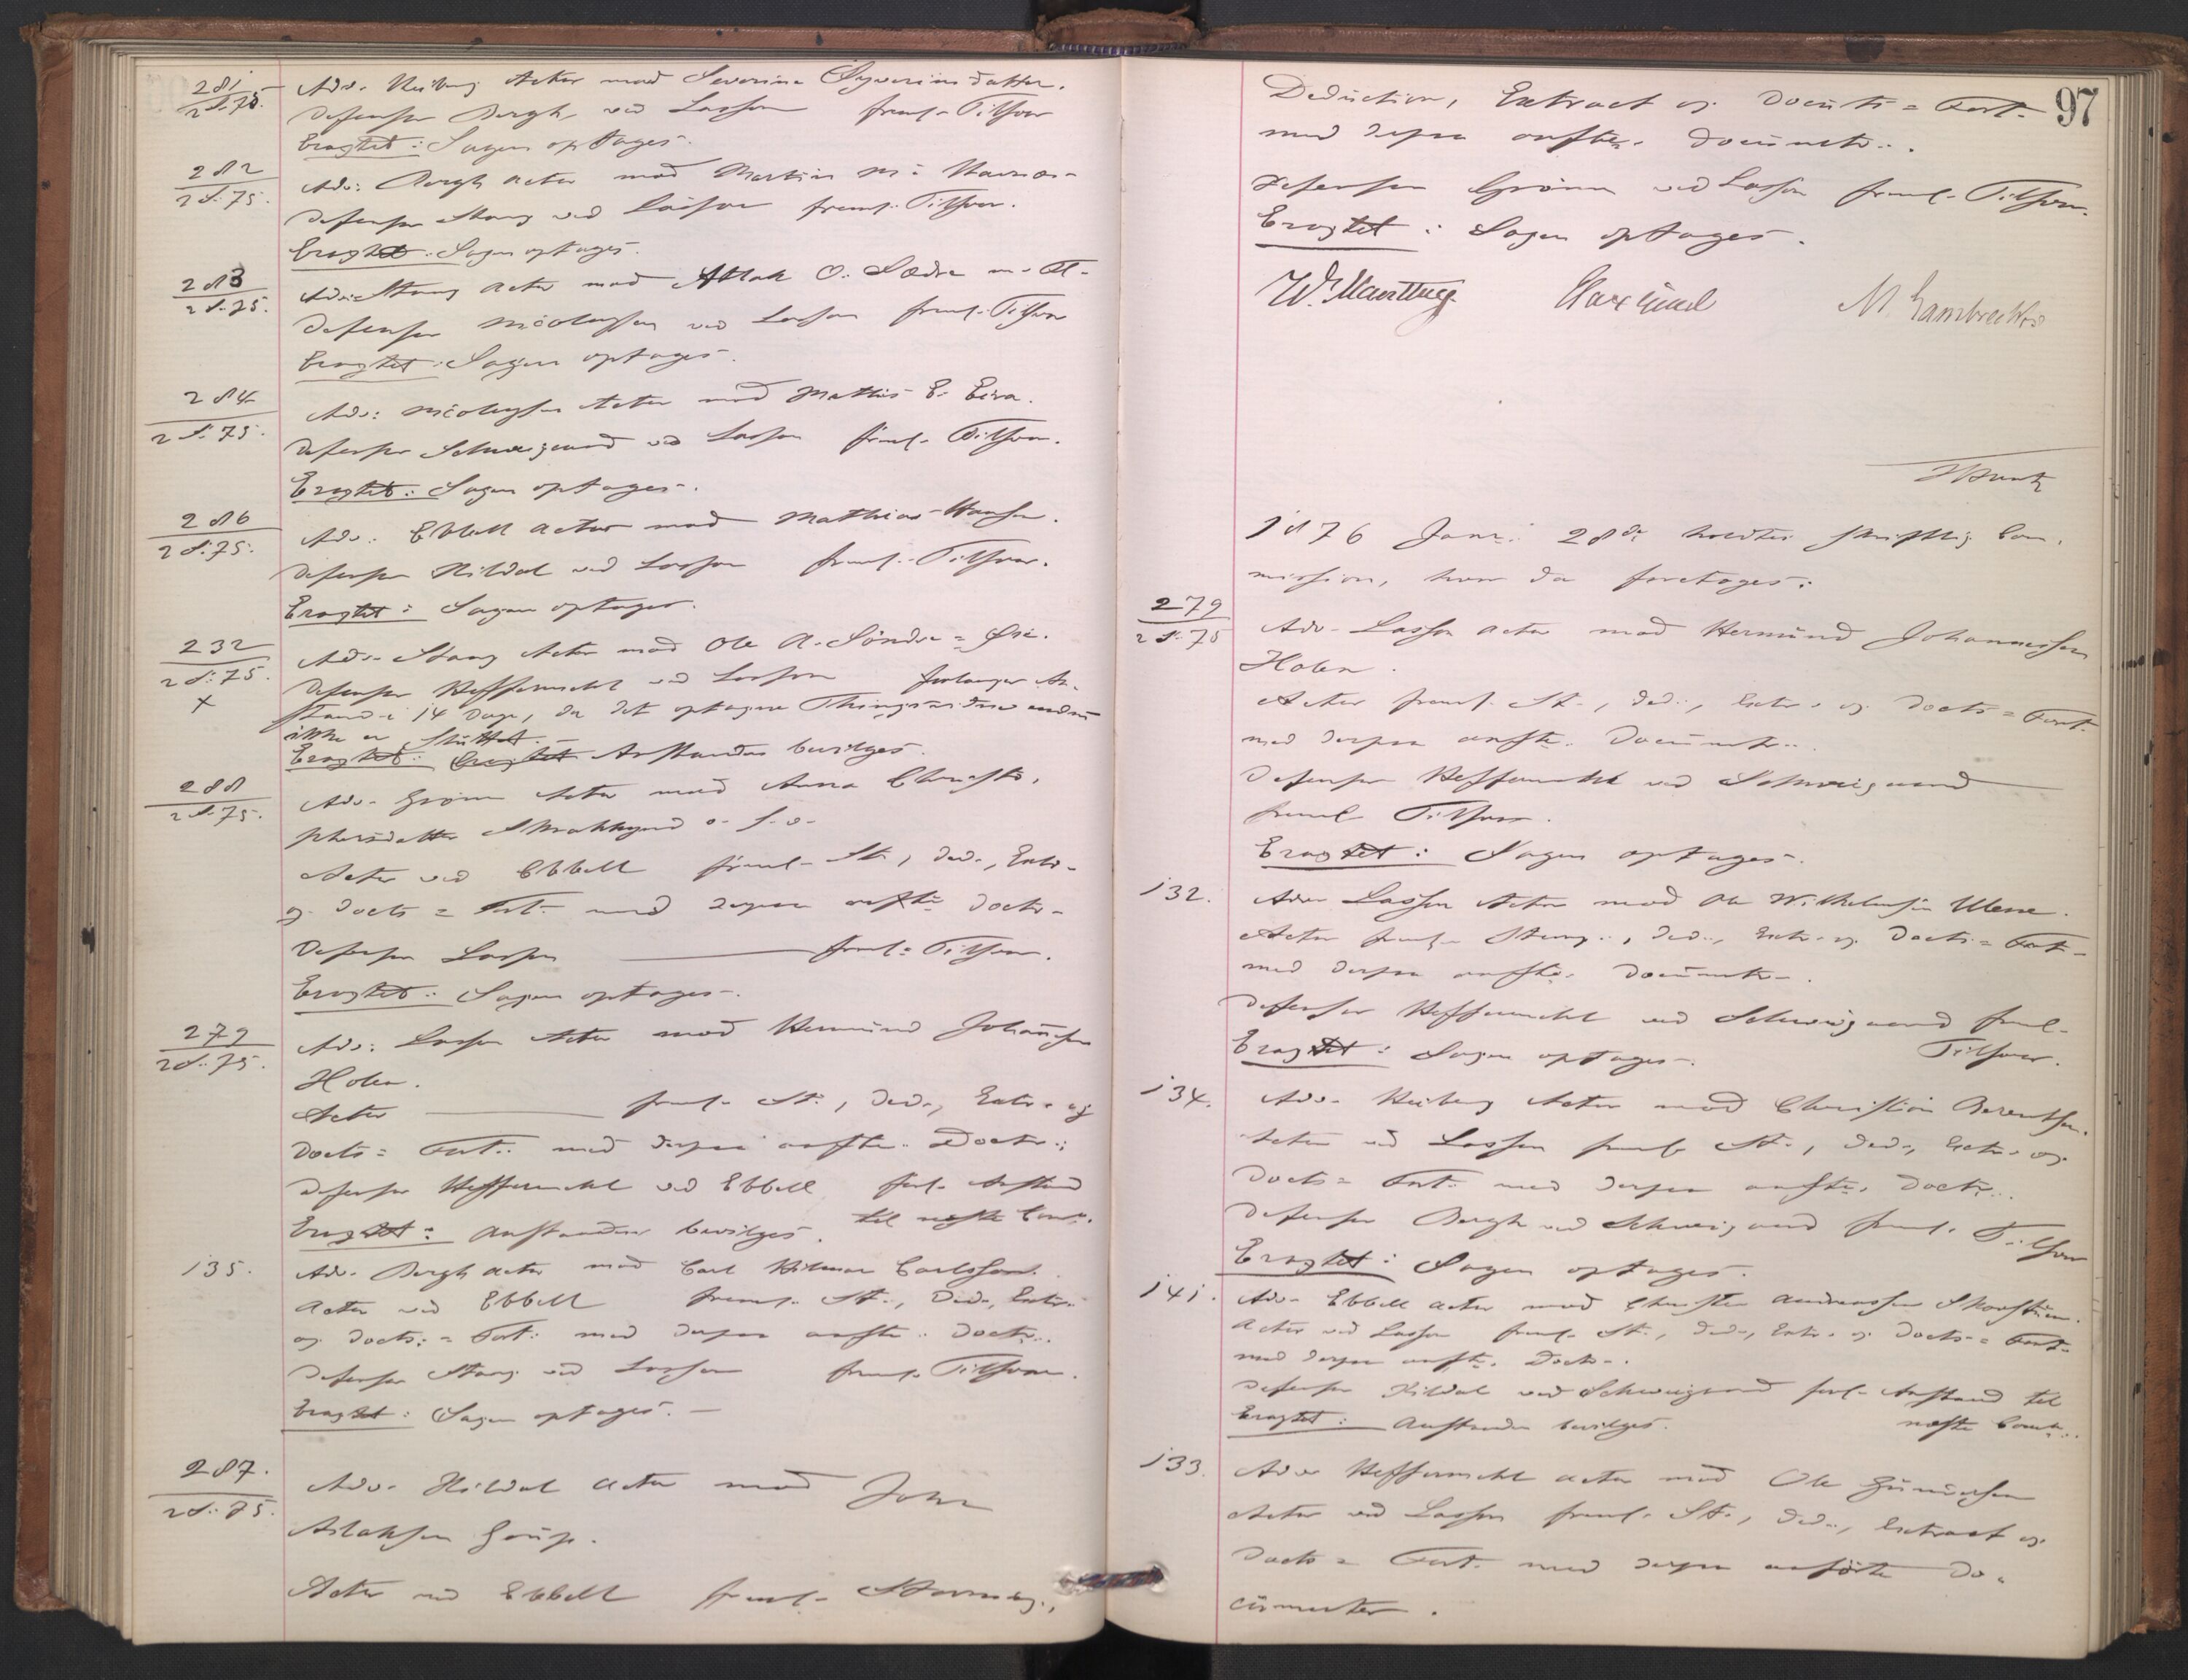 281
2 S. 75.
Adv. Heiberg Actor mod Severine Syverinsdatter.
Defensor Bergh ved Lasson freml. Tilsvar
Eragtet: Sagen optages.
282
2 S. 75.
Adv: Bergh Actor mod Martin
Defensor Stang ved Lasson freml. Tilsvar.
Eragtet: Sagen optages.
283
2 S. 75.
Adv: Stang Actor mod Aslak O. Sædre m. Fl.
Defensor Nicolaysen ved Lasson freml. Tilsvar
Eragtet: Sagen optages.
284
2 S. 75.
Adv: Nicolaysen Actor mod Mathis E. Eira.
Defensor Schweigaard ved Lasson freml. Tilsvar.
Eragtet: Sagen optages.
286
2 S. 75.
Adv. Ebbell Actor mod Mathias Hansen.
Defensor Hildal ved Lasson freml. Tilsvar.
Eragtet: Sagen optages.
232
2 S. 75.
x
Adv. Stang Actor mod Ole A. Söndre =
Defensor Heffermehl ved Lasson forlanger An-
stand i 14 Dage, da det optagne Thingsvidne endnu
ikke er sluttet.
Eragtet: Anstanden bevilges.
288
2 S. 75.
Adv. Grönn Actor mod Anna Christo-
phersdatter o. s. v.
Actor ved Ebbell freml. St., Ded., Extr.
og Docts = Fort. med derpaa anførte Doctr.
Defensor Lasson freml. Tilsvar.
Eragtet: Sagen optages.
279
2 S. 75.
Adv: Lasson Actor mod Hermund Johannessen
Holen.
Actor freml. St., Ded., Extr. og
Docts = Fort. med derpaa anførte Doctr.
Defensor Heffermehl ved Ebbell forl. Anstand
til næste Comm.
Eragtet: Anstanden bevilges.
135.
Adv. Bergh Actor mod Carl Hilmar Carlsson.
Actor ved Ebbell freml. St., Ded., Extr.
og Docts. = Fort: med derpaa anførte Doctr.
Defensor Stang ved Lasson freml. Tilsvar.
Eragtet: Sagen optages.
287.
2 S. 75.
Adv. Hildal Actor mod John
Aslaksen
Actor ved Ebbell freml. Stævning,
97
Deduction, Extract og Docuts = Fort.
med derpaa anførte Documtr.
Defensor Grönn ved Lasson freml. Tilsvar.
Eragtet: Sagen optages.
M. Lambrechts
1876 Janr. 28de holdtes skriftlig Com-
mission, hvor da foretages:
279
2 S. 75
Adv. Lasson Actor mod Hermund Johannessen
Holen.
Actor freml. St., Ded., Extr. og Docts = Fort.
med derpaa anførte Documtr.
Defensor Heffermehl ved Schweigaard
freml. Tilsvar.
Eragtet: Sagen optages.
132.
Adv. Lasson Actor mod Ole Wilhelmsen
Actor freml. Stævn., Ded., Extr. og Docts = Fort.
med derpaa anførte Documtr.
Defensor Heffermehl ved Schweigaard freml.
Tilsvar.
Eragtet: Sagen optages.
134.
Adv. Heiberg Actor mod Christian Berentsen.
Actor ved Lasson freml. St., Ded., Extr. og
Docts = Fort. med derpaa anførte Doctr.
Defensor Bergh ved Schweigaard freml. Tilsvar
Eragtet: Sagen optages.
141.
Adv. Ebbell Actor mod Christen Andreassen
Actor ved Lasson freml. St., Ded., Extr. og Docts = Fort.
med derpaa anførte Doctr.
Defensor Hildal ved Schweigaard forl. Anstand til
næste Comm.
Eragtet: Anstanden bevilges.
133.
Adv. Heffermehl Actor mod Ole Gundersen
Actor ved Lasson freml. St., Ded., Extract og
Docts = Fort. med derpaa anförte Do-
cumenter.